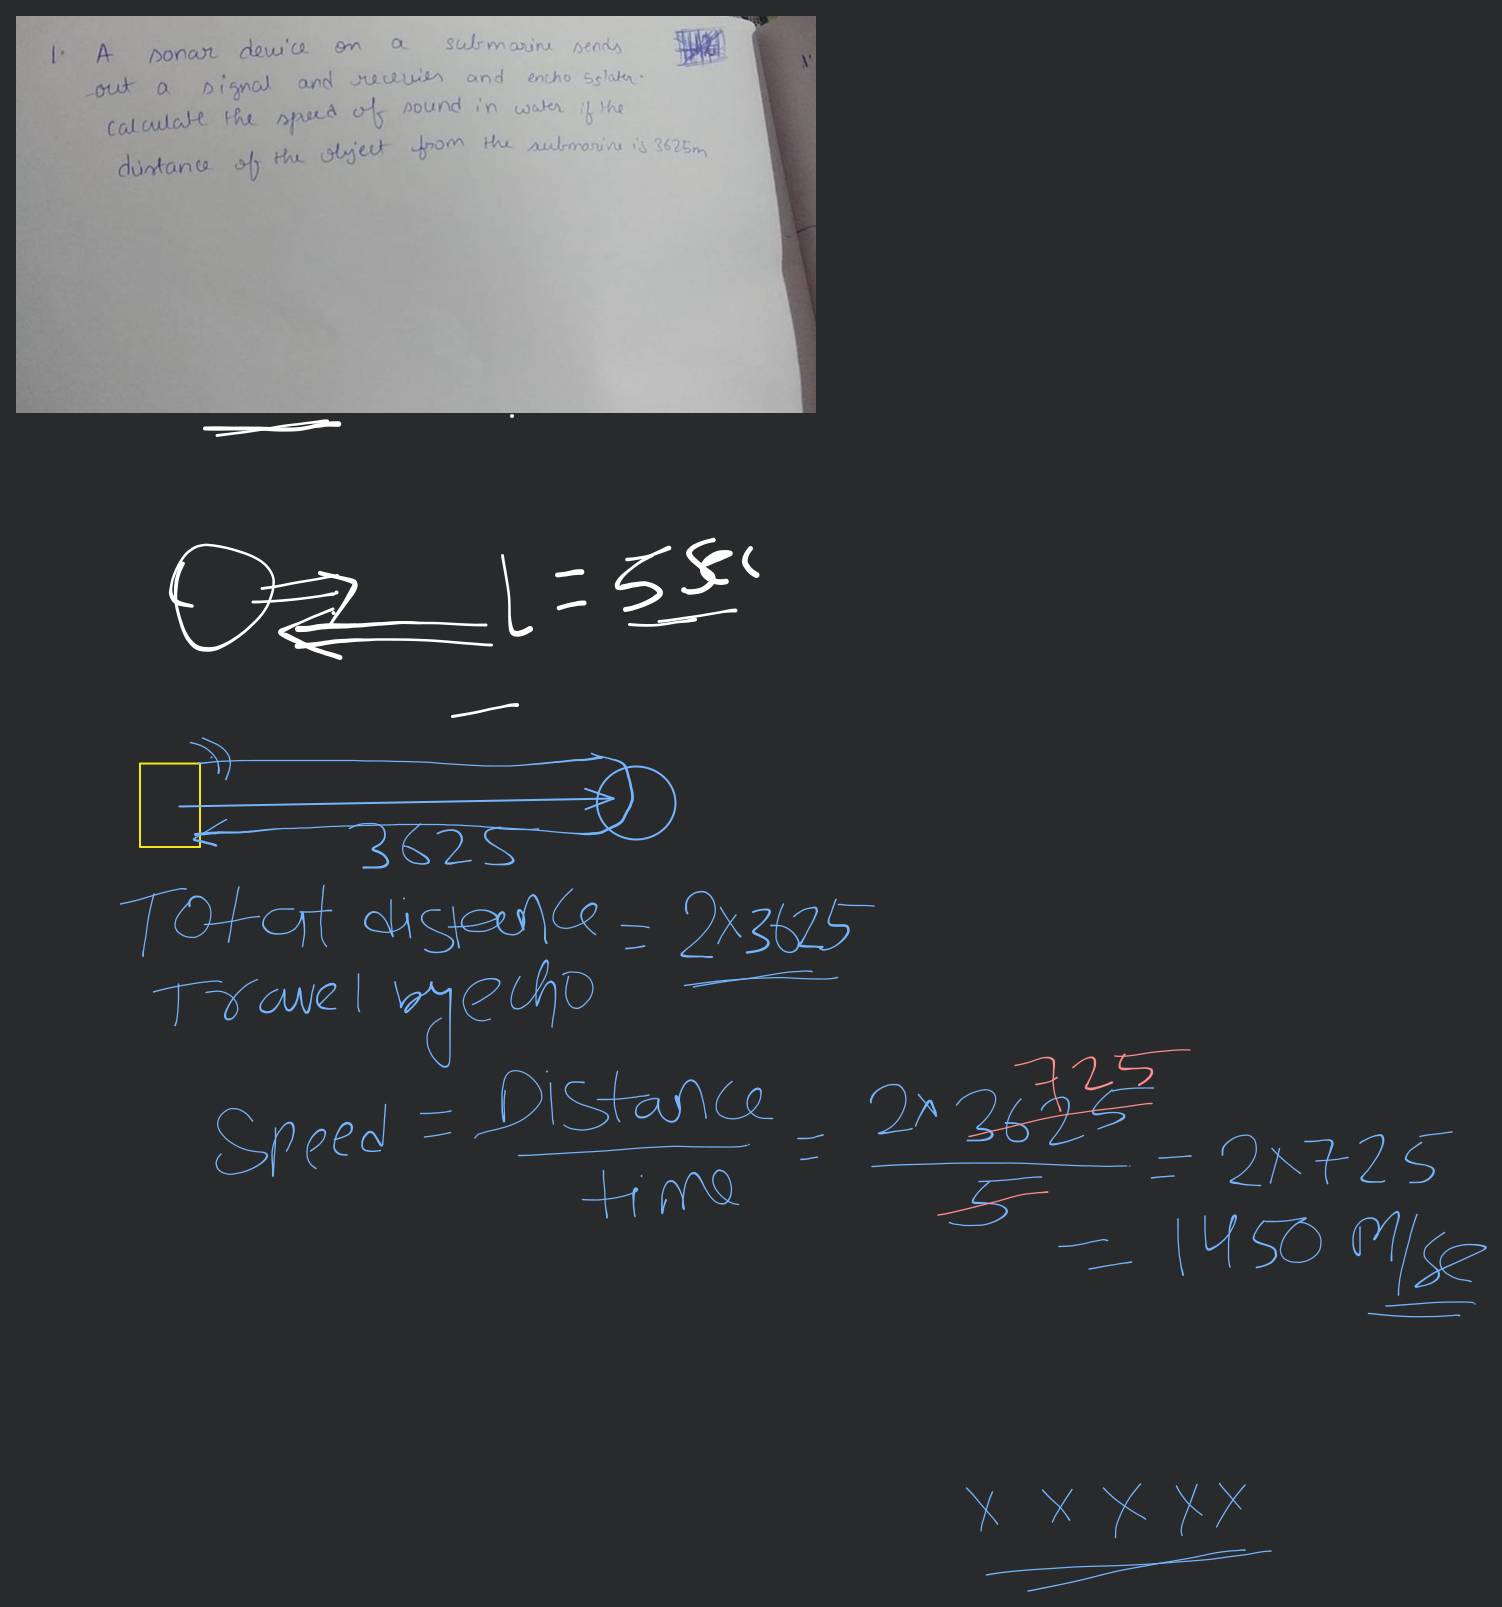 1. A sonar device on a submarine sends
out a signal and recevies and encho 5s later.
calculate the speed of sound in water if the
distance of the object from the submarine is 3625m
= 5 sec
3625
Total distance = 2×3625
Travel by echo
Speed = Distance / time = 2×3625 / 5 = 2×725
725
= 1450 m/se
x x x x x